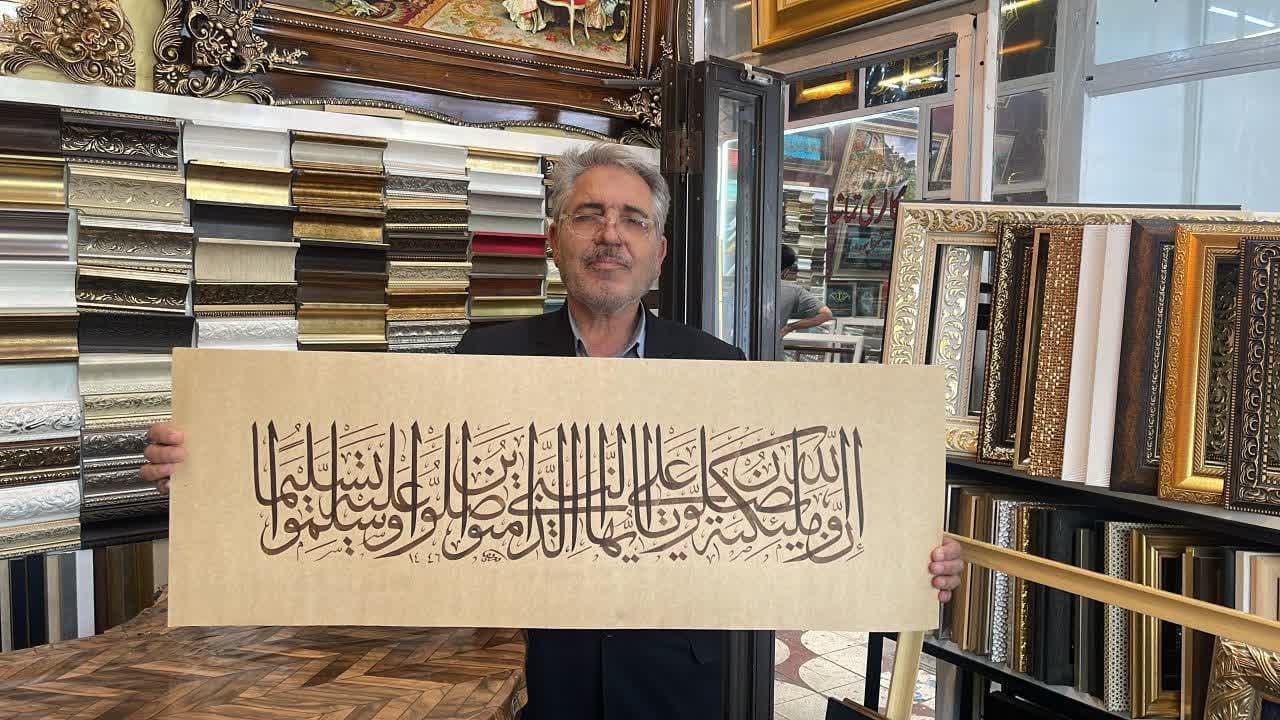 إن الله وملئكته يصلون على النبي يأيها الذين امنوا صلوا عليه وسلموا تسليما
١٤٤٦
گالری تماشا